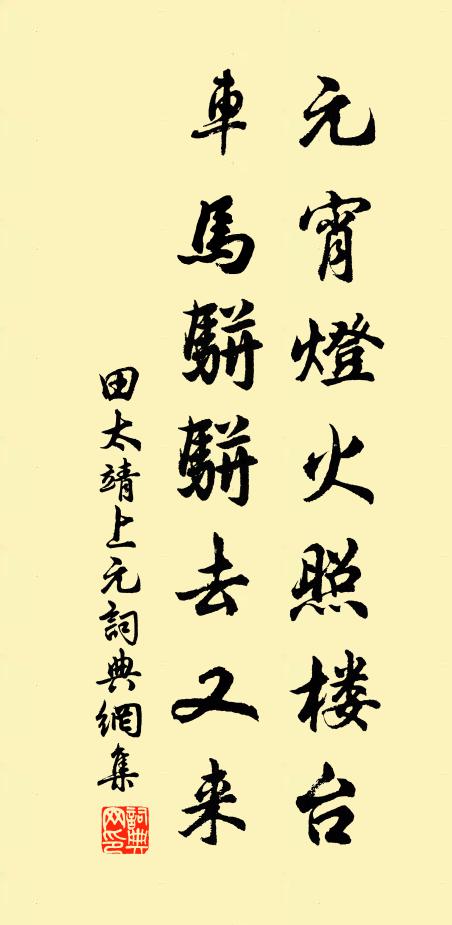 元宵燈火照楼台
車馬駢駢去又来
田太靖上元詞典網集
詞典网印